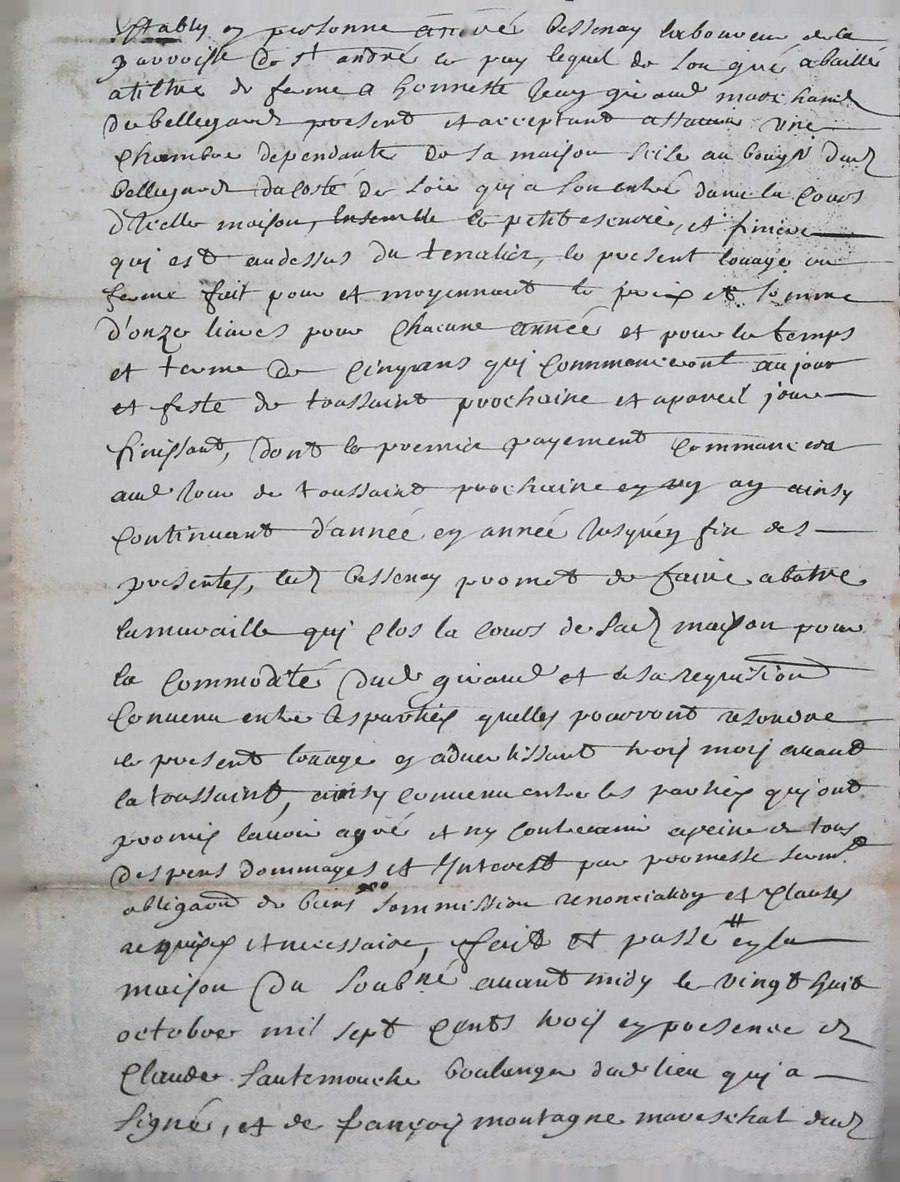 Estably en personne andré bessenay laboureur de la
parroisse de st andré le puy lequel de son gré a baillé
a tiltre de ferme a honneste Jean giraud marchand
de bellegard present et acceptant assauoir une
Chambre dependante de sa maison scise au bourg dud
bellegard du costé de soir qui a son entré dans la Cours
d'icelle maison, Ensemble le petit escurie, et finiere
qui est audessus du tenalier, le present louage ou
ferme fait pour et moyennant le prix et somme
d'onze liures pour Chacune année et pour le temps
et terme de Cinq ans qui Commanceront au jour
et feste de toussaint prochaine et a pareil jour
finissant, dont le premier payement Commancera
aud Jour de toussaint prochaine en un an ainsy
Continuant d'année en année Jusqu'en fin des
presentes, led bessenay promet de faire abatre
la muraille qui Clos la Cours de sad maison pour
la Commodité dud giraud et a sa requisition
Conuenu entre les parties quelles pourront resoudre
le present louage en aduertissant trois mois auant
la toussaint, ainsy Conuenu entre les parties qui ont
promis l'auoir agré et ny Contreuenir a peine de tous
despens dommages et Interest par promesse serm.t
obligaon de biens sommission renonciation et Clauses
requises et necessaire, fait et passé en la
maison du soubné auant midy le vingt huit
octobre mil sept Cents trois en presence de
Claude sautemouche boulanger dud lieu qui a
signé, et de françois montagne mareschal dud